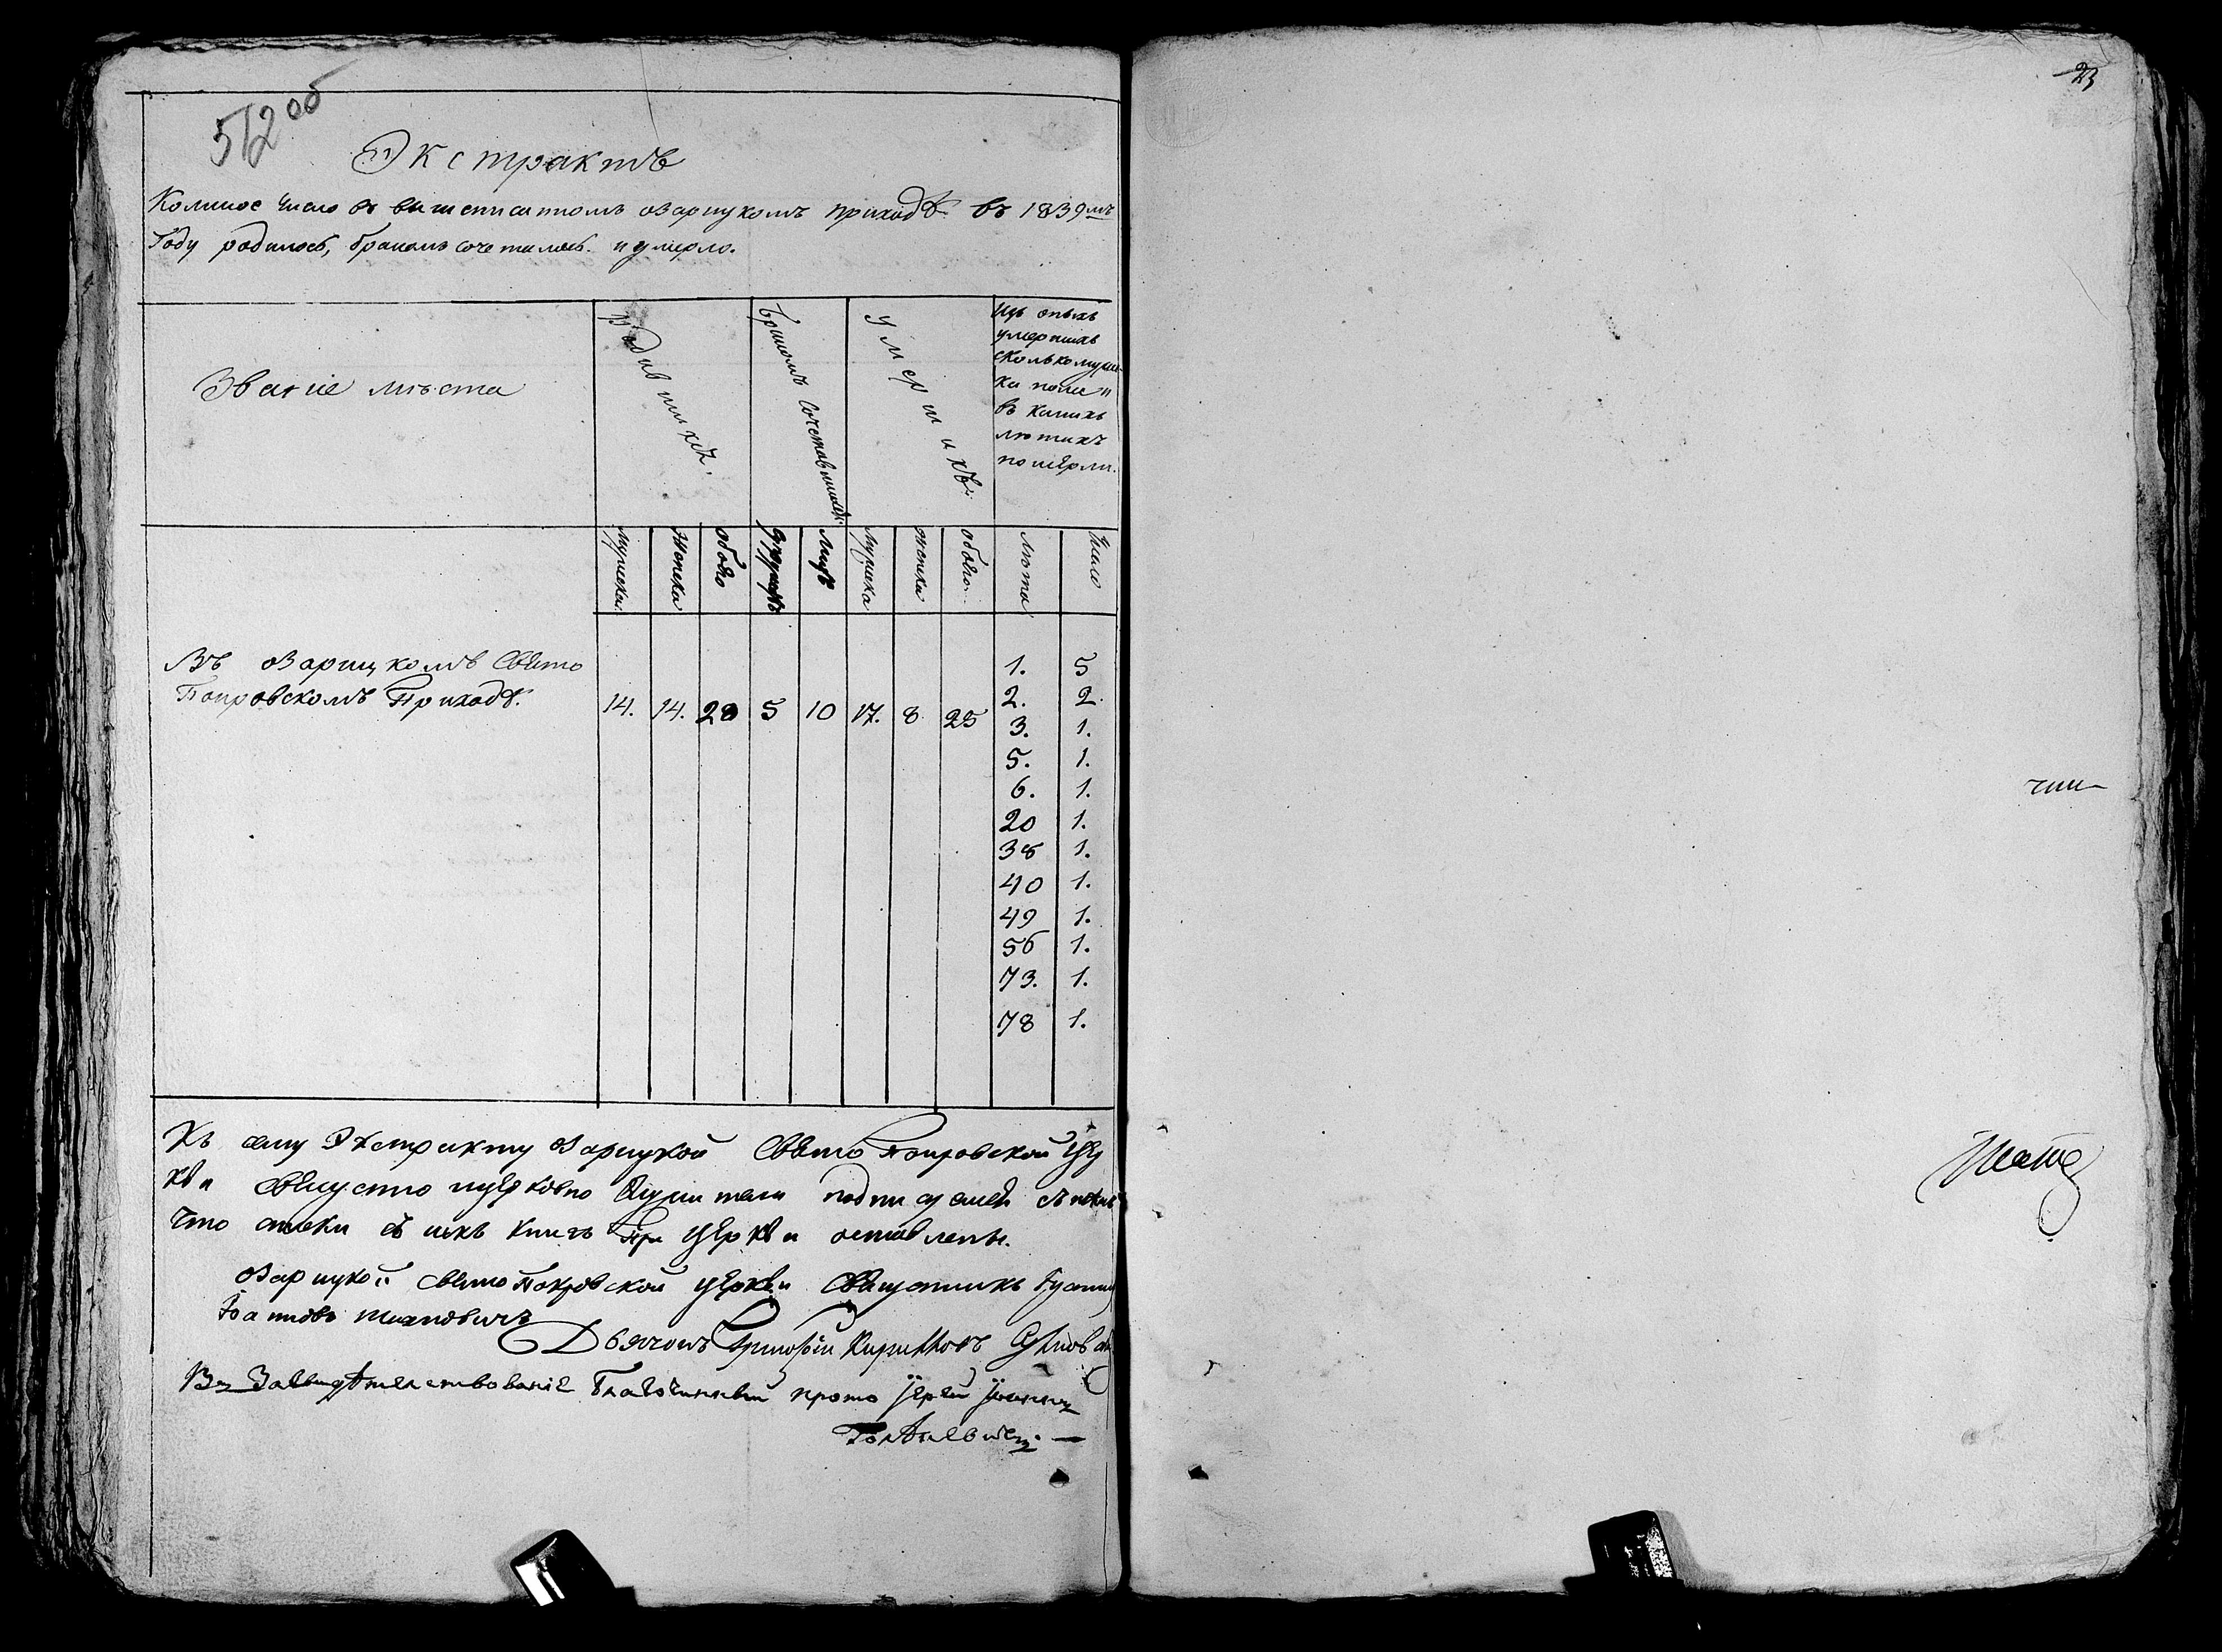 512 об
Экстрактъ
Коликое число въ вышеписанномъ озарицкомъ приходѣ въ 1839мъ
Году родилось, бракомъ сочеталось и умерло.
Званіе мѣста
Родившихся.
Бракомъ Сочетавшихся
Умершихъ
Изъ оныхъ
умершихъ
сколько муже-
ка пола и
въ какихъ
лѣтахъ
померли.
мужеска
женска
обоего
супружествъ
лицъ
мужеска
женска
обоего
лѣта
число
Въ озарицкомъ Свѣто
Покровскомъ Приходѣ. 14. 14. 28 5 10 17. 8 25
1. 5
2. 2.
3. 1.
5. 1.
6. 1.
20 1.
38 1.
40 1.
49 1.
56 1.
73. 1.
78 1.
Къ сему Экстракту озарицкой Свѣто Покровской Цер
кви Священно церковно служители подписуемся
что таки съ ихъ книгъ при церкви оставлены.
озарицкой свѣто Покровской церкви Священникъ
Іоанновъ
Дьячокъ Григорій Кирилловъ
Въ Засвидѣтелствованіе Благочинный прото Іерей Іоаннъ
23